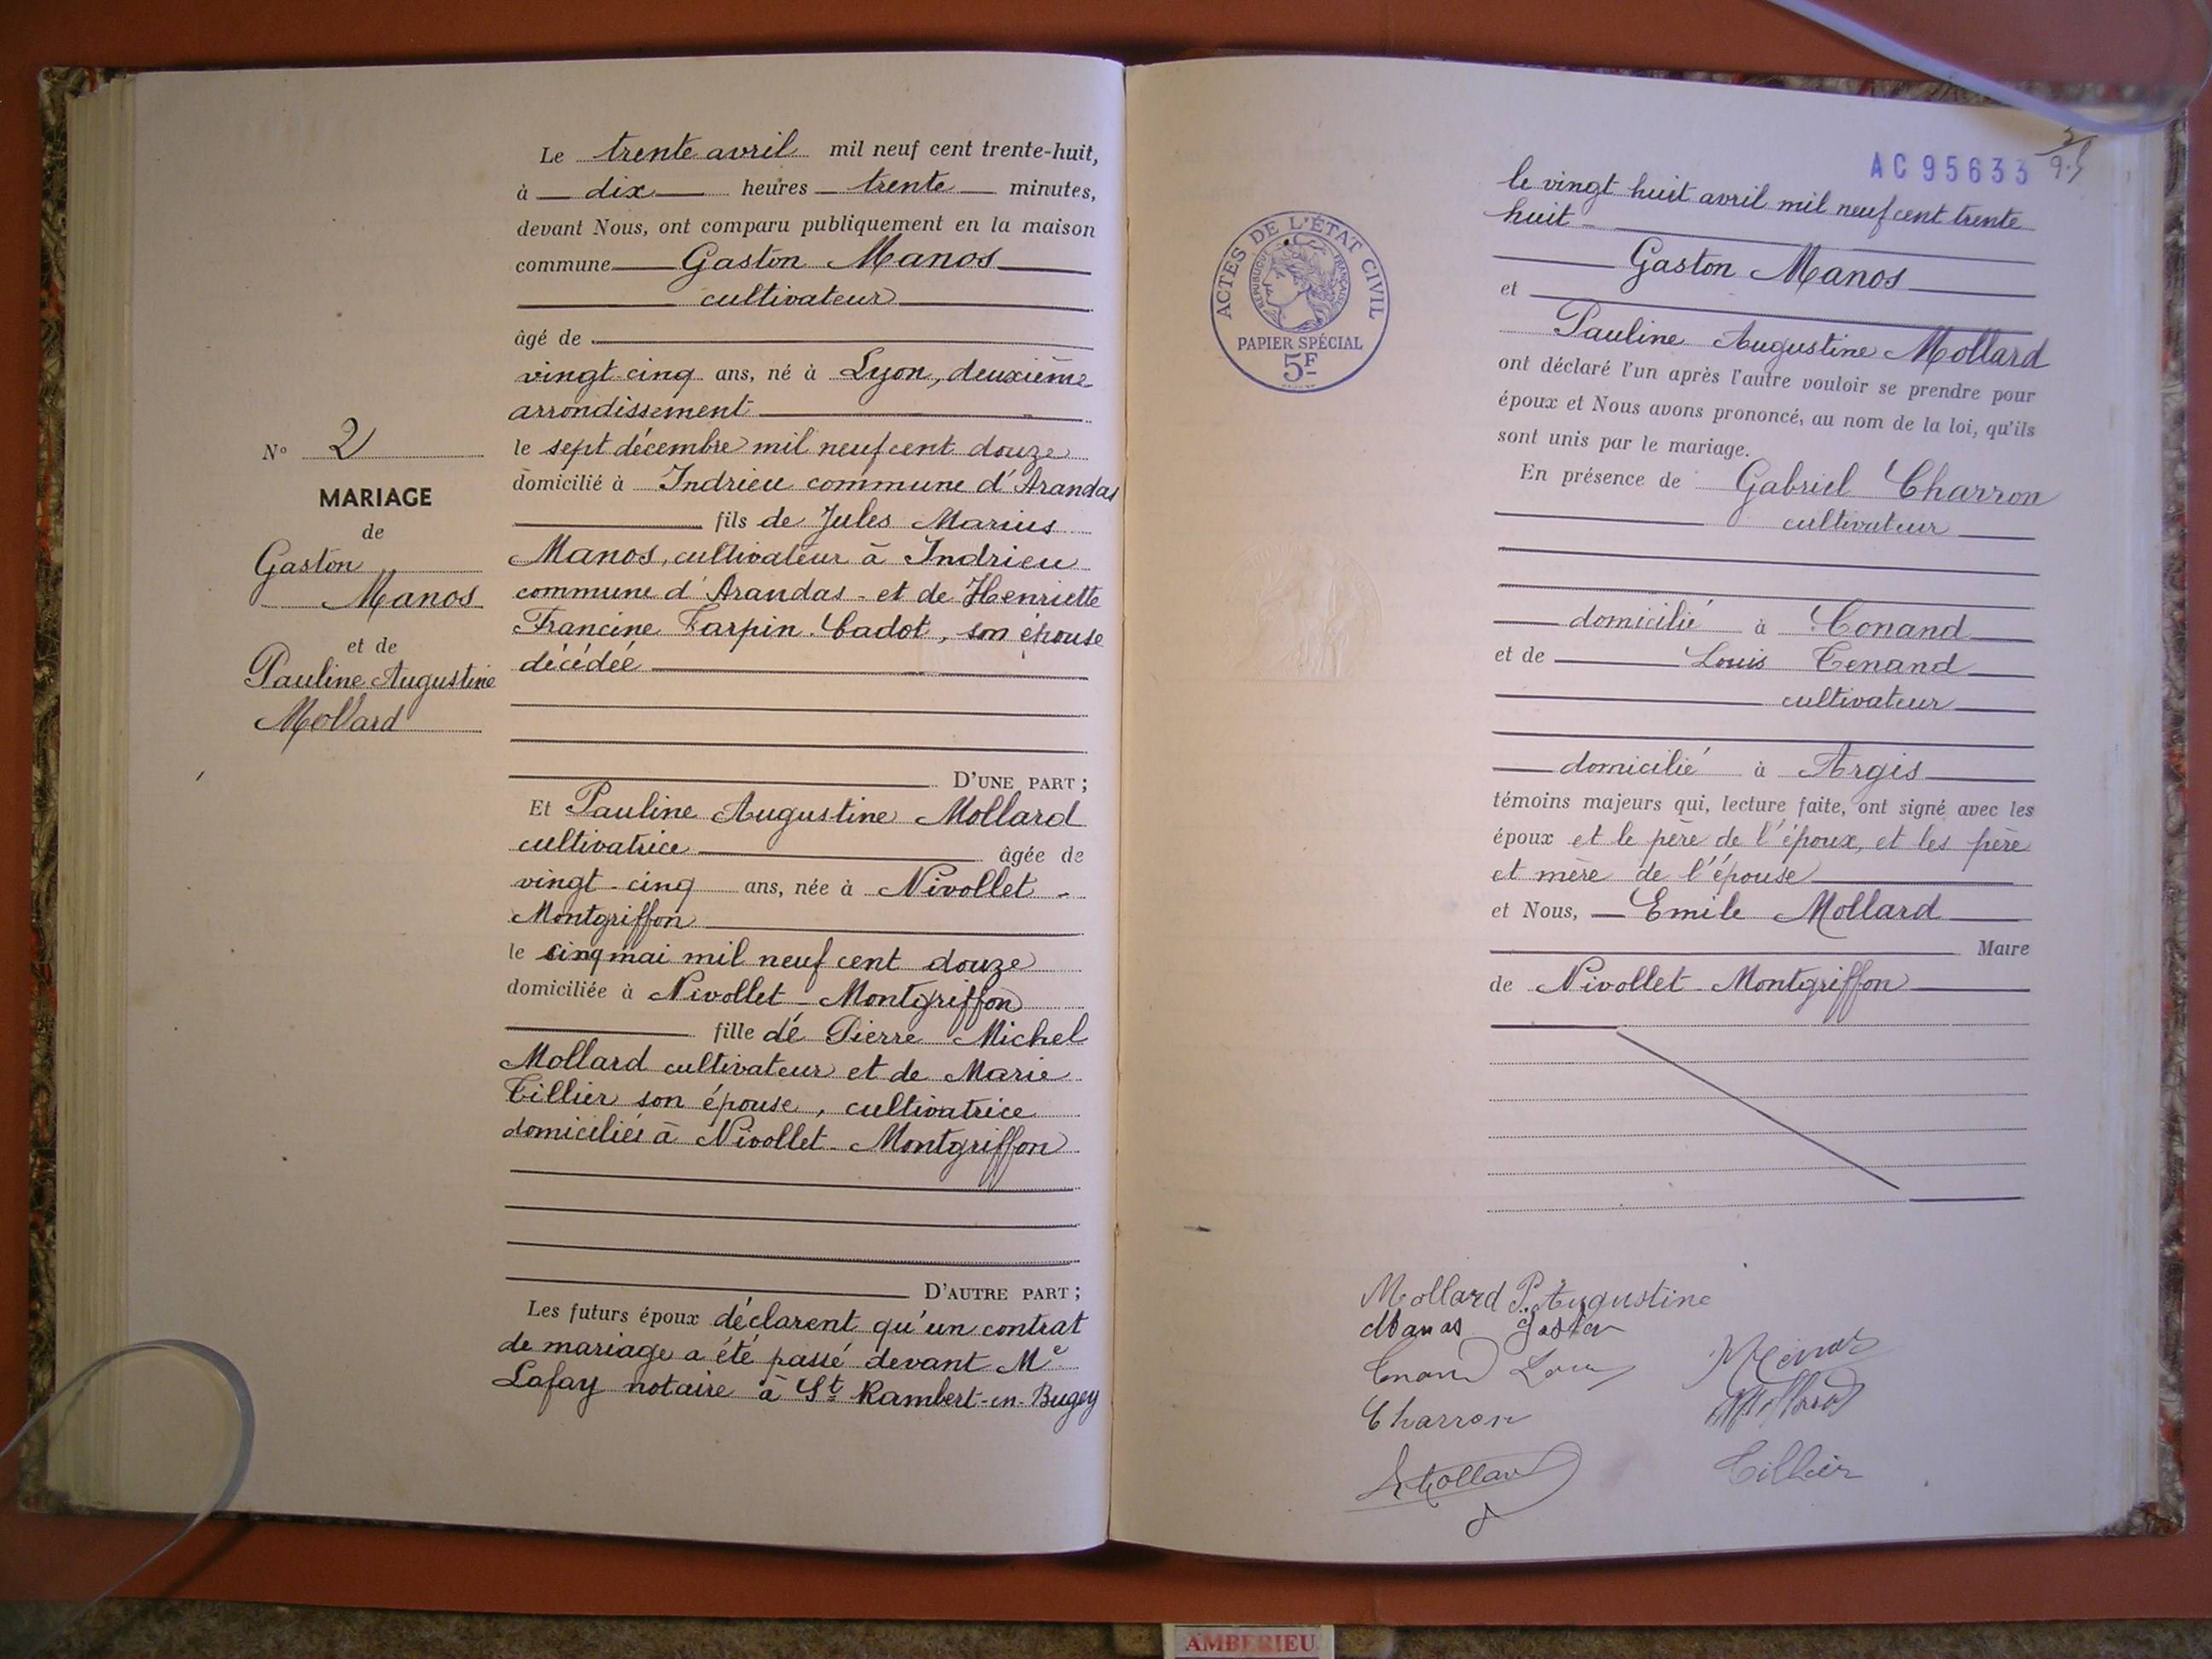 N° 2
MARIAGE
de
Gaston
Manos
et de
Pauline Augustine
Mollard
Le trente avril mil neuf cent trente-huit,
à dix heures trente minutes,
devant Nous, ont comparu publiquement en la maison
commune Gaston Manos
cultivateur
âgé de
vingt-cinq ans, né à Lyon, deuxième
arrondissement
le sept décembre mil neuf cent douze
domicilié à Indrieu commune d'Arandas
fils de Jules Marius
Manos, cultivateur à Indrieu
commune d'Arandas - et de Henriette
Francine Tarpin. Cadot, son épouse
décédée
D'UNE PART ;
Et Pauline Augustine Mollard
cultivatrice âgée de
vingt-cinq ans, née à Nivollet -
Montgriffon
le cinq mai mil neuf cent douze
domiciliée à Nivollet - Montgriffon
fille de Pierre Michel
Mollard cultivateur et de Marie
Tillier son épouse, cultivatrice
domiciliés à Nivollet - Montgriffon
D'AUTRE PART ;
Les futurs époux déclarent qu'un contrat
de mariage a été passé devant Me
Lafay notaire à St Rambert-en-Bugey
AC95633
ACTES DE L'ÉTAT CIVIL
RÉPUBLIQUE FRANÇAISE
PAPIER SPÉCIAL
5F
le vingt huit avril mil neuf cent trente
huit
Gaston Manos
et
Pauline Augustine Mollard
ont déclaré l'un après l'autre vouloir se prendre pour
époux et Nous avons prononcé, au nom de la loi, qu'ils
sont unis par le mariage.
En présence de Gabriel Charron
cultivateur
domicilié à Conand
et de Louis Tenand
cultivateur
domicilié à Argis
témoins majeurs qui, lecture faite, ont signé avec les
époux et le père de l'époux, et les père
et mère de l'épouse
et Nous, Emile Mollard
Maire
de Nivollet - Montgriffon
Mollard P. Augustine
Manos Gaston
Tenand Louis
Charron
Mollard
Tillier
AMBERIEU